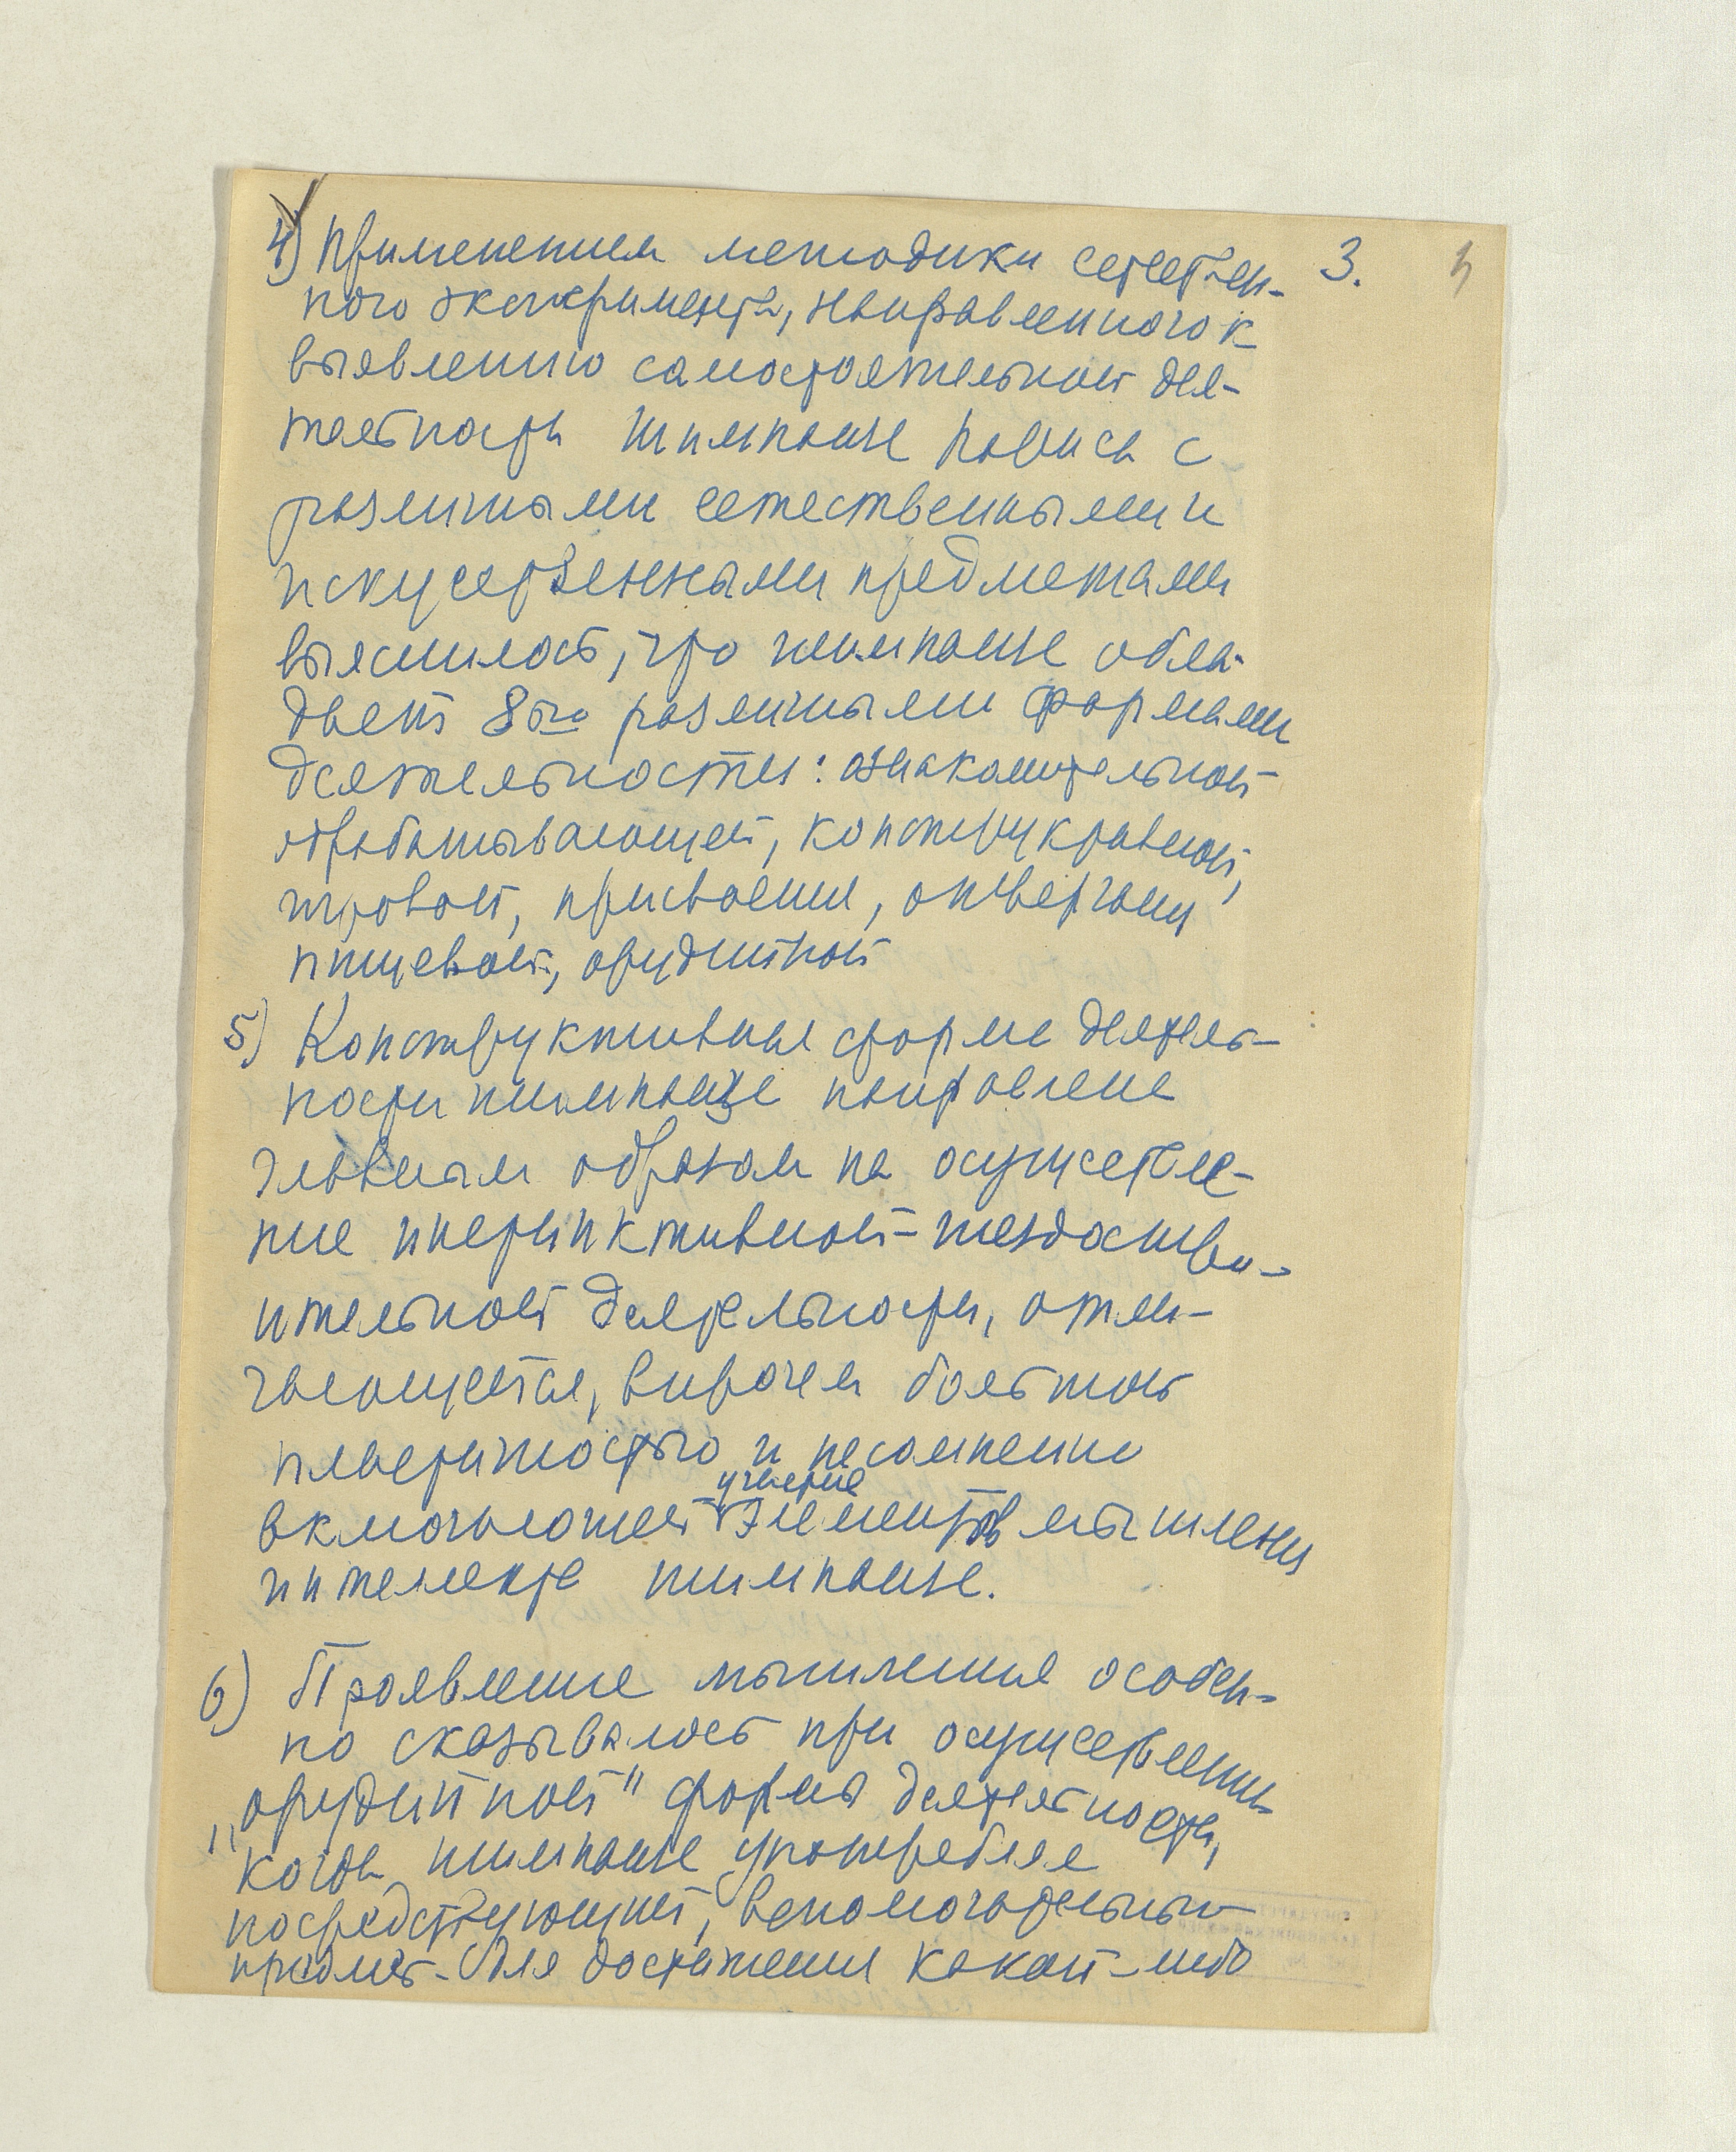 3.
4) Применением методики естествен-
ного эксперимента, направленного к
выявлению самостоятельной дея-
тельности шимпанзе Париса с
различными естественными и
искусственными предметами
выяснилось, что шимпанзе обла-
дает 8ью различными формами
деятельности: ознакомительной
обрабатывающей, конструктивной,
игровой, присвоения, отвергания
пищевой, орудийной
5) Конструктивная форма деятель-
ности шимпанзе направлена
главным образом на осуществле-
ние инстинктивной-гнездостро-
ительной деятельности, отли-
чающейся, впрочем большой
пластичностью и несомненно
участие
включающей элементов мышления
интеллекта шимпанзе.
6) Проявление мышления особен-
но сказывалось при осуществлении
„орудийной" формы деятельности,
когда шимпанзе употребляе
посредствующий, вспомогательный
предмет для достижения какой-либо